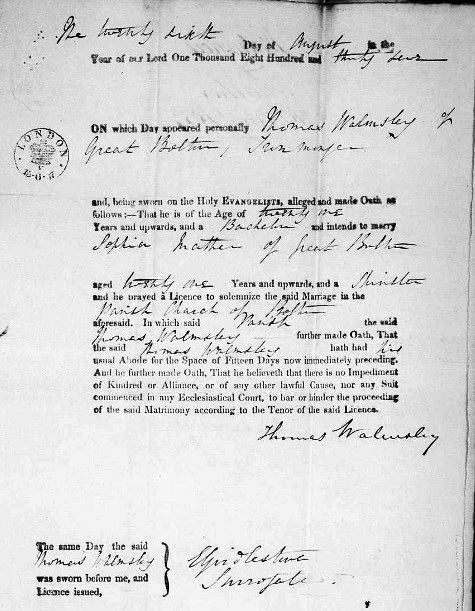 The twenty sixth
Day of August in the
Year of our Lord One Thousand Eight Hundred and thirty seven
ON which Day appeared personally Thomas Walmsley of
Great Bolton,
LONDON
and, being sworn on the Holy EVANGELISTS, alleged and made Oath as
follows:—That he is of the Age of twenty one
Years and upwards, and a Bachelor and intends to marry
Sophia Mather of Great Bolton
aged twenty one Years and upwards, and a Spinster
and he prayed a Licence to solemnize the said Marriage in the
Parish Church of Bolton
aforesaid. In which said Parish the said
Thomas Walmsley further made Oath, That
the said Thomas Walmsley hath had his
usual Abode for the Space of Fifteen Days now immediately preceding.
And he further made Oath, That he believeth that there is no Impediment
of Kindred or Alliance, or of any other lawful Cause, nor any Suit
commenced in any Ecclesiastical Court, to bar or hinder the proceeding
of the said Matrimony according to the Tenor of the said Licence.
Thomas Walmsley
The same Day the said
Thomas Walmsley
was sworn before me, and
Licence issued,
Surrogate